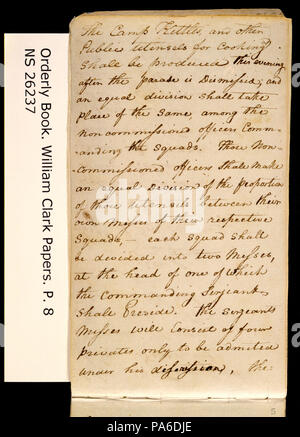 Orderly Book. William Clark Papers. P. 8
NS 26237
The Camp Kettles, and other
Public Utensels for Cooking
Shall be produced this evening
after the parade is Dismissed; and
an equal division shall take
place of the Same, among the
non commissioned officers Comm-
anding the Squads. Those Non-
Commissioned officers Shall make
an equal Division of the proportion
of those utensils between their
own Messes of their respective
Squads, — each squad shall
be devided into two Messes,
at the head of one of which
the commanding Serjeant
Shall Preside. the Sergeants
Messes will Consist of four
privates only to be admited
under his discression, the
5
alamy
PA6DJE